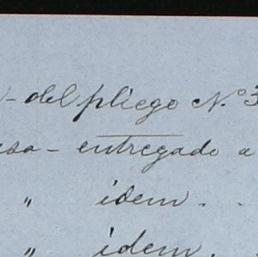 - del pliego N.º 3
esa - entregado a
" idem . .
" idem .